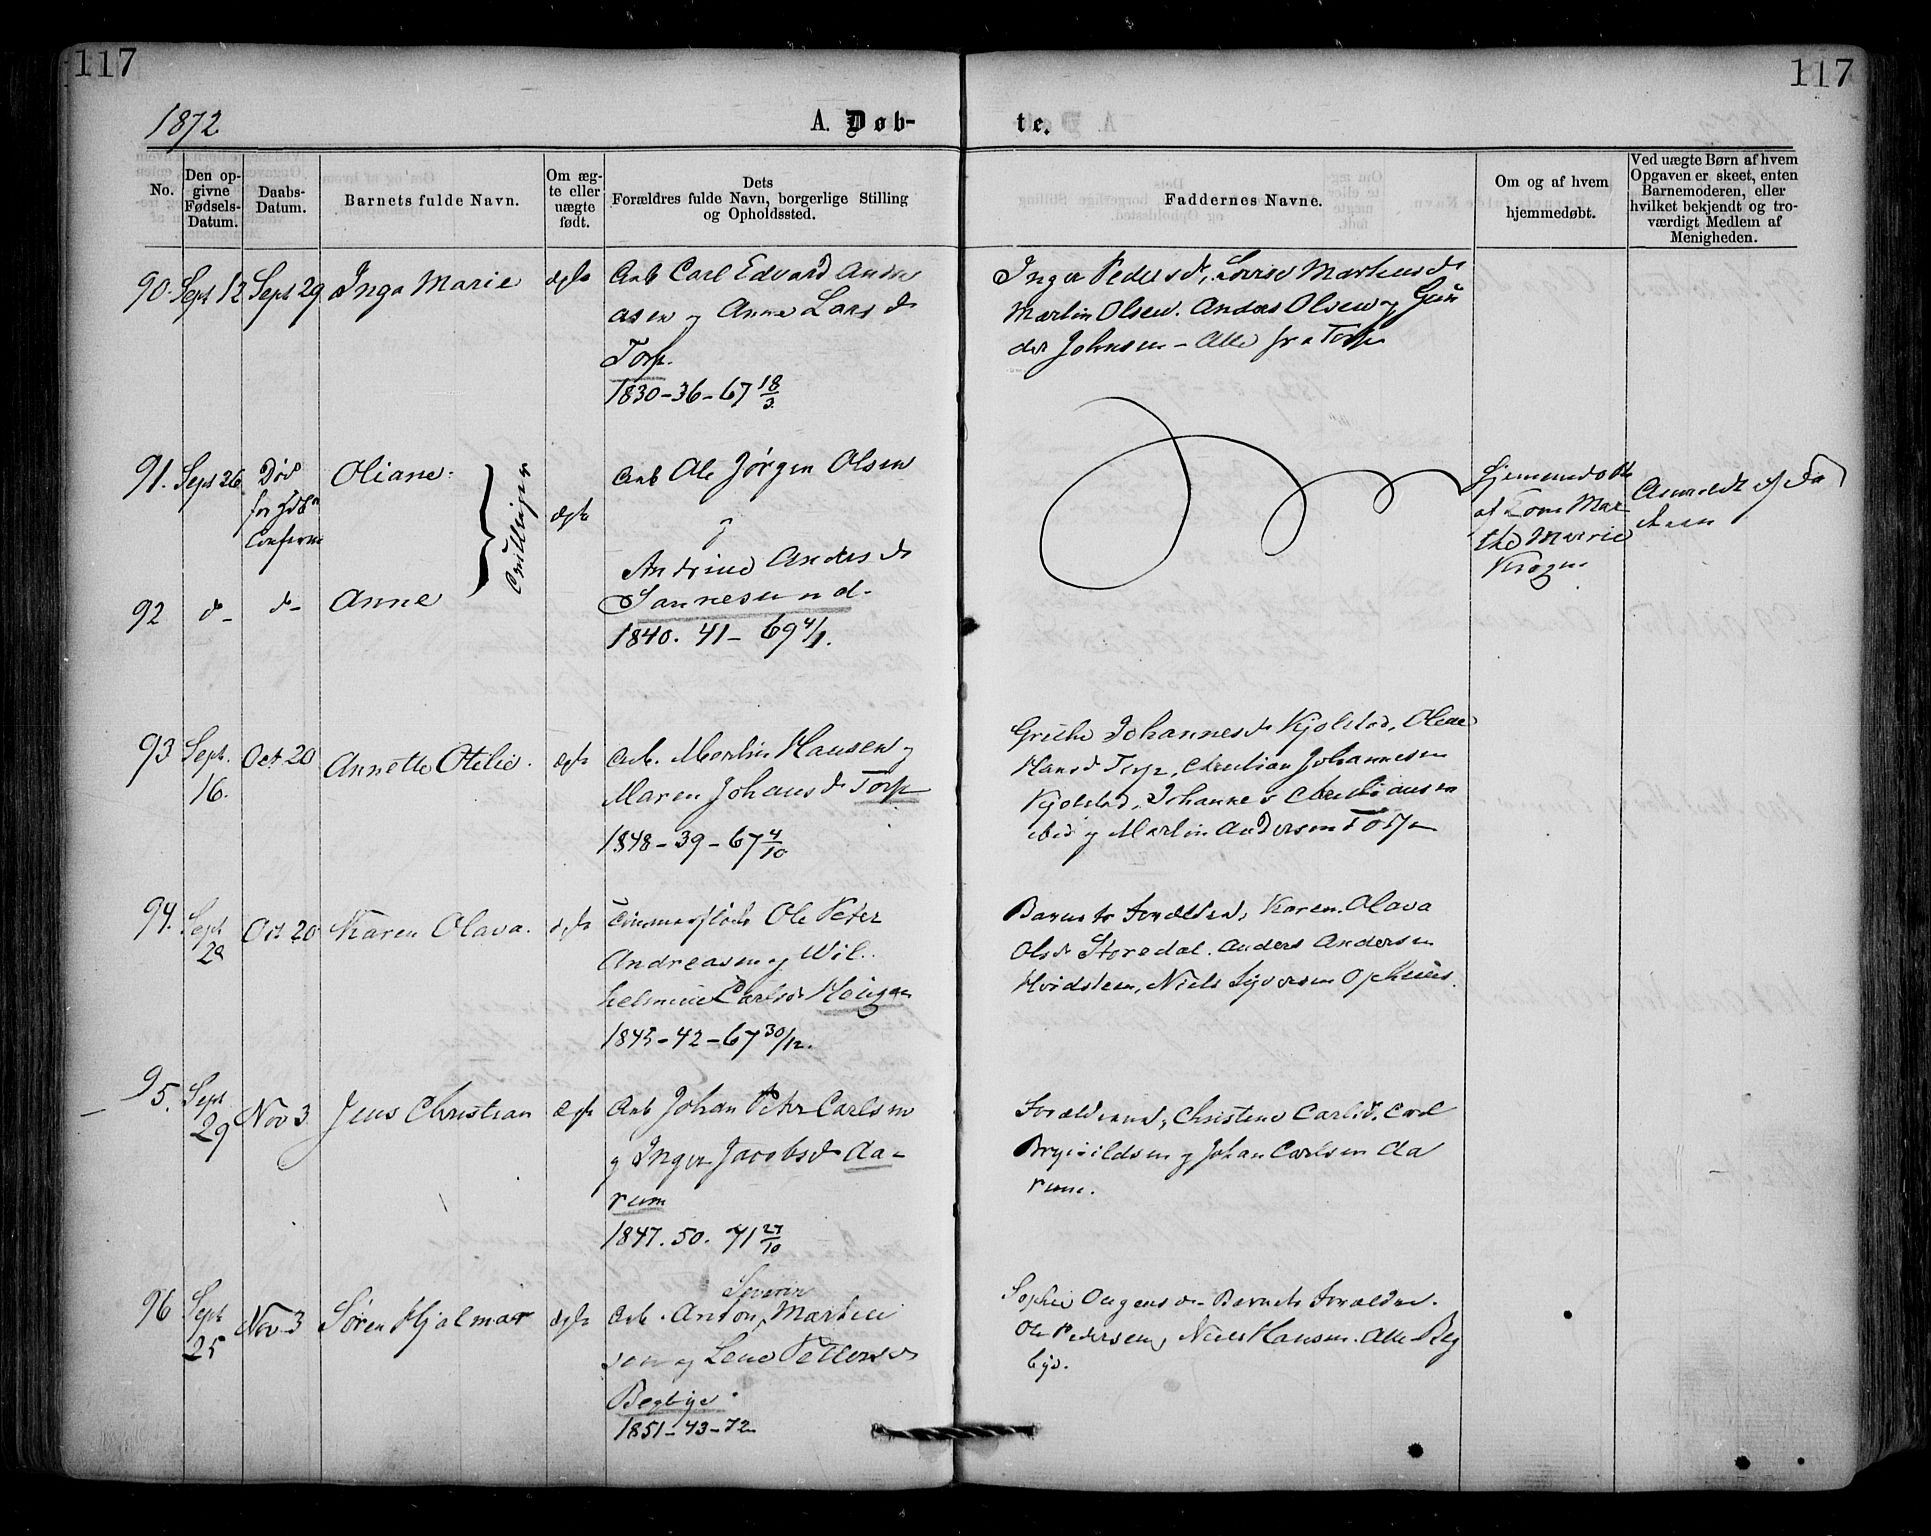 117
117
1872
A. Døb-
te.
No.
Den op-
givne
Fødsels-
Datum.
Daabs-
Datum.
Barnets fulde Navn.
Om æg-
te eller
uægte
født.
Dets
Forældres fulde Navn, borgerlige Stilling
og Opholdssted.
Faddernes Navne.
Om og af hvem
hjemmedøbt.
Ved uægte Børn af hvem
Opgaven er skeet, enten
Barnemoderen, eller
hvilket bekjendt og tro-
værdigt Medlem af
Menigheden.
90. Sept 12 Sept 29 Inga Marie ægte
Arb Carl Edvard Andre
asen og Anne Larsd
Torp.
1830-36-67 18/3
Inger Pedersd, Lovise Martinsd
Martin Olsen. Anders Olsen og Gun
der Johnsen - Alle fra Torp
91. Sept 26
Død
før
Oliane.
Tvillinger
ægte
Arb Ole Jørgen Olsen
og
Andrine Andersd
Sannesund.
1840. 41- 69 4/1.
Hjemmedøbt
af Kone Mar-
the Marie
Anmeldt af Fa
deren
92 d- d- Anne
93 Sept.
16.
Oct 20 Annette Otilie. ægte
Arb. Martin Hansen og
Maren Johansd Torp
1848-39-67 4/10
Grethe Johannesd Kjølstad, Olene
Hansd Torp, Christian Johannesen
Kjølstad, Johannes Christiansen
ibid og Martin Andersen Torp
94. Sept
29
Oct 20 Karen Olava. ægte
Tømmerfløder Ole Peter
Andreasen og Wil-
helmine Carlsd Haugen
1845-42-67 30/12.
Barnets Forældre, Karen Olava
Olsd Storedal. Anders Andersen
Hvidsteen, Niels Syversen Ophuus.
95. Sept
29
Nov 3 Jens Christian ægte
Arb Johan Peter Carlsen
og Inger Jacobsd Aa-
rum
1847. 50. 71 27/10
Forældrene, Christine Carlsd, Carl
Brynildsen og Johan Carlsen Aa
rum.
96 Sept
25
Nov. 3 Søren Hjalmar ægte
Severin
Arb. Anton Martin
sen og Lene Pettersd
Begbye.
1851-43-72
Sophie Barnets Forældre.
Ole Pedersen, Niels Hansen. Alle Beg
bye.